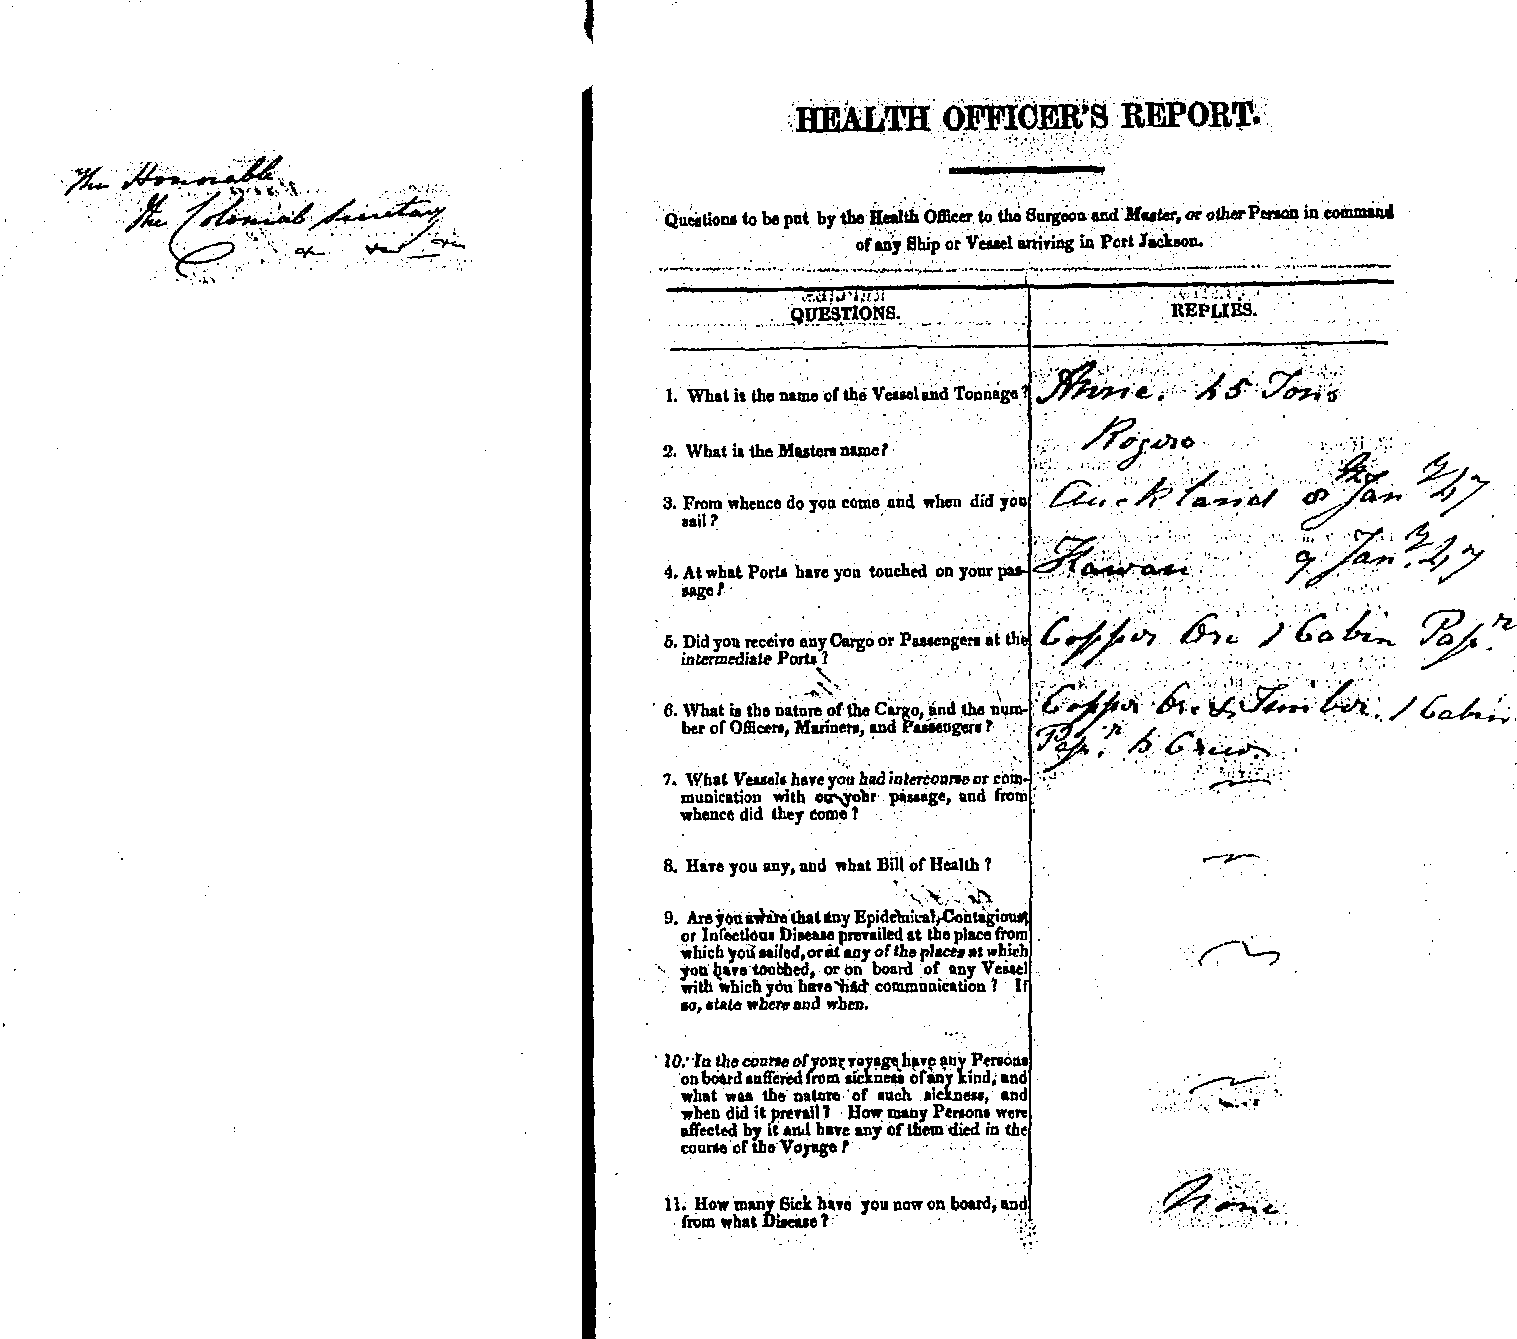 The Honorable
The Colonial Secretary
&c &c &c
HEALTH OFFICER'S REPORT.
Questions to be put by the Health Officer to the Surgeon and Master, or other Person in command
of any Ship or Vessel arriving in Port Jackson.
QUESTIONS.
REPLIES.
1. What is the name of the Vessel and Tonnage?
Anne. 45 Tons
2. What is the Masters name?
Rogers
3. From whence do you come and when did you
sail?
Auckland 8th Jany 47
4. At what Ports have you touched on your pas-
sage?
Kawau 9 Jany. 47
5. Did you receive any Cargo or Passengers at the
intermediate Ports?
Copper Ore 1 Cabin Pasr.
6. What is the nature of the Cargo, and the num-
ber of Officers, Mariners, and Passengers?
Copper Ore & Timber. 1 Cabin
Pasr. Crew.
7. What Vessels have you had intercourse or com-
munication with on your passage, and from
whence did they come?
8. Have you any, and what Bill of Health?
9. Are you aware that any Epidemical, Contagious,
or Infectious Disease prevailed at the place from
which you sailed, or at any of the places at which
you have touched, or on board of any Vessel
with which you have had communication? If
so, state where and when.
10. In the course of your voyage have any Persons
on board suffered from sickness of any kind, and
what was the nature of such sickness, and
when did it prevail? How many Persons were
affected by it and have any of them died in the
course of the Voyage?
11. How many Sick have you now on board, and
from what Disease?
None